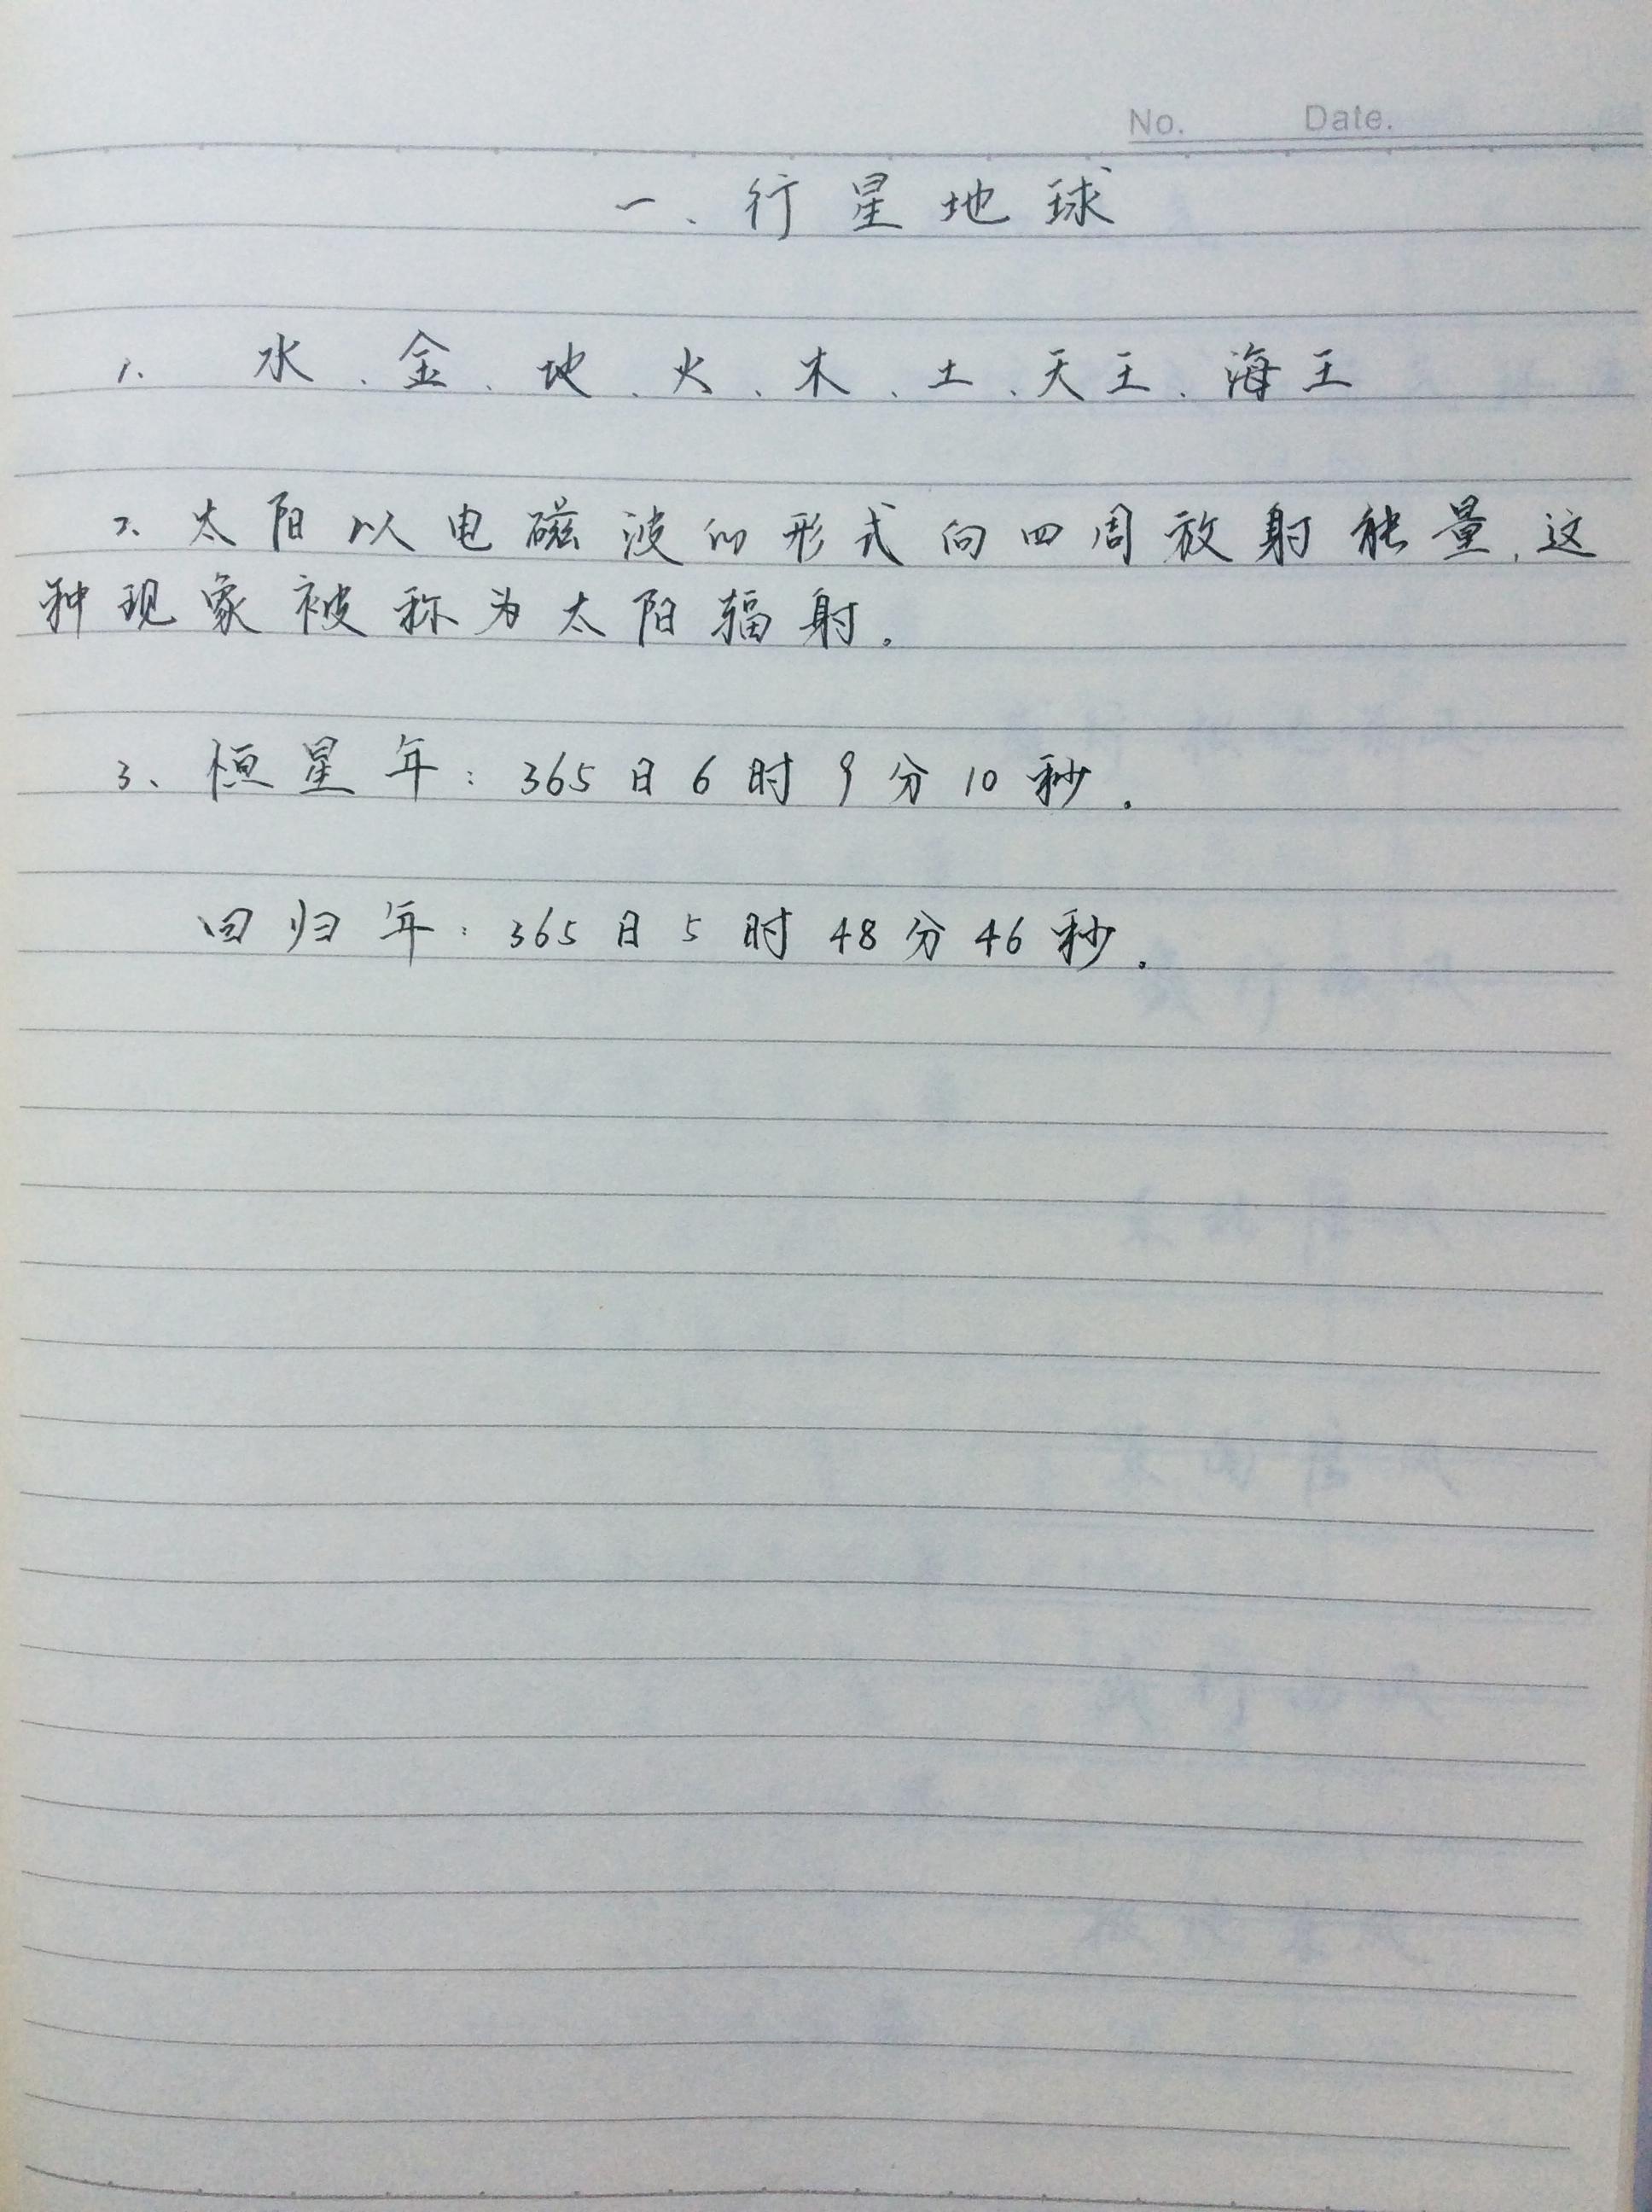 No. Date.
一、行星地球
1. 水、金、地、火、木、土、天王、海王
2. 太阳以电磁波的形式向四周放射能量,这
种现象被称为太阳辐射。
3、恒星年:365日6时9分10秒.
回归年:365日5时48分46秒。